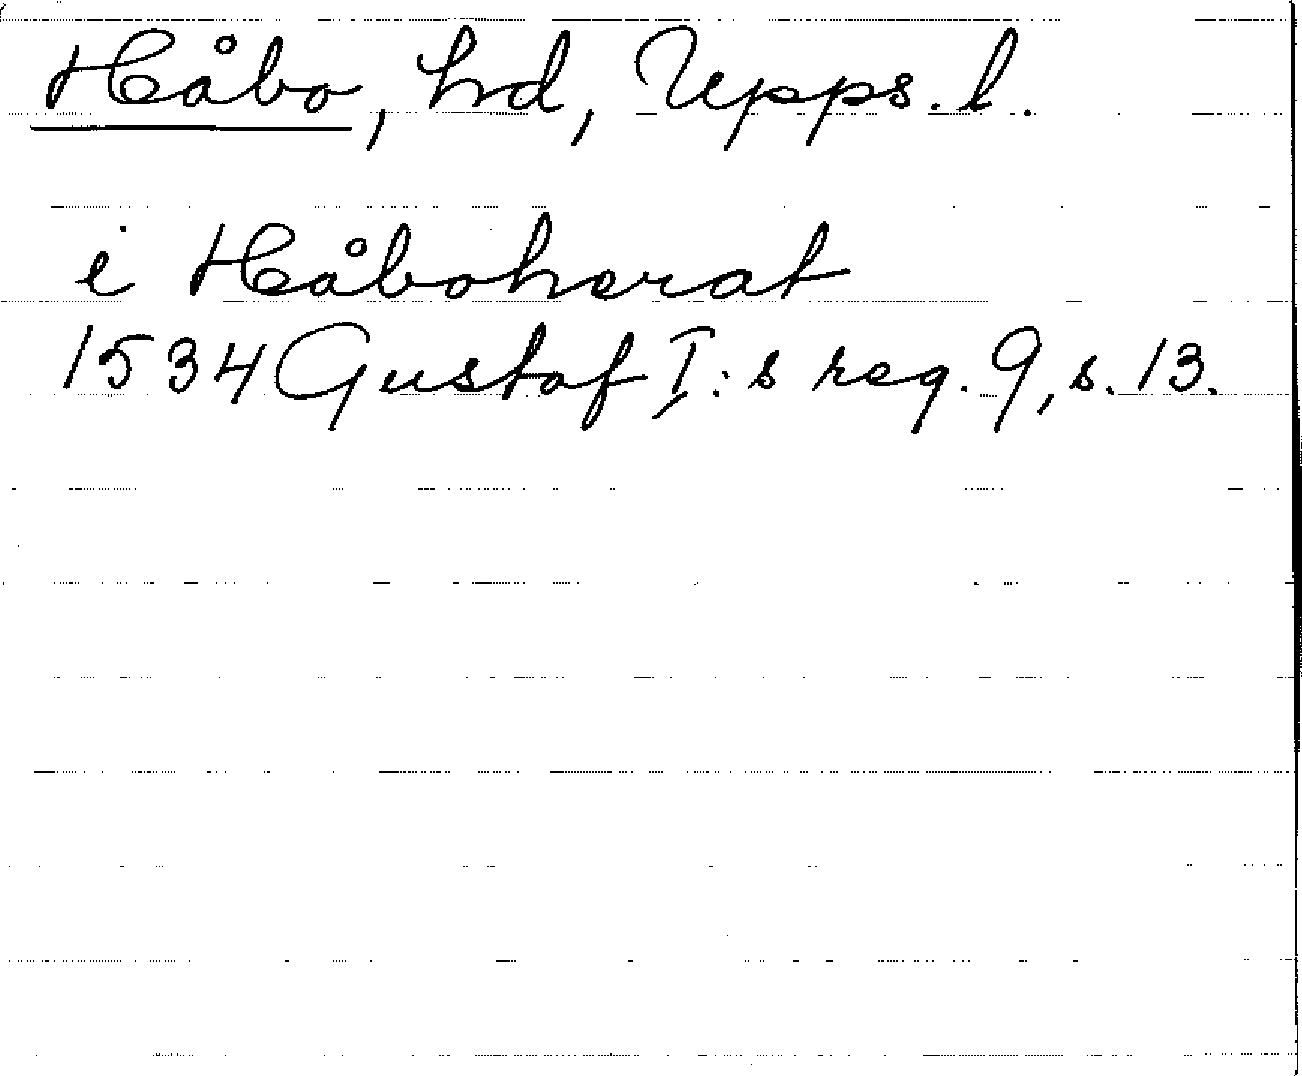 Håbo, hd, Upps. l.
i Håboherat
1534 Gustaf I:s reg. 9, s. 13.